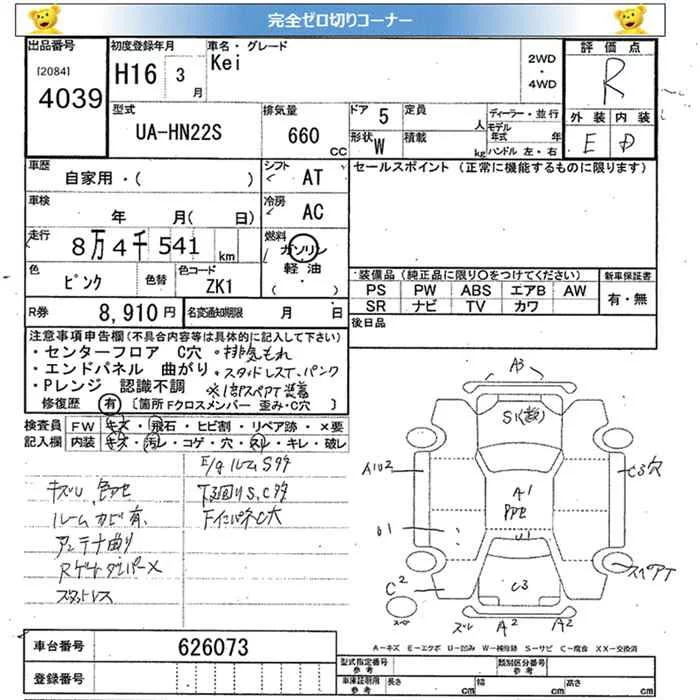 完全ゼロ切りコーナー
出品番号
[2084]
4039
初度登録年月
H16 3月
車名・グレード
Kei
2WD
・
4WD
評価点
R
外装 内装
E D
型式
UA-HN22S
排気量
660 CC
ドア 5
定員 人
形状 W
積載 kg
ディーラー・並行
モデル年式 年
ハンドル 左・右
車歴
自家用・( )
シフト
AT
セールスポイント (正常に機能するものに限ります)
車検
年 月( 日)
冷房
AC
走行
8万4千541 km
燃料
ガソリン
軽油
( ・ )
色
ピンク
色替
色コード
ZK1
装備品(純正品に限り○をつけてください)
PS PW ABS エアB AW
SR ナビ TV カワ
新車保証書
有・無
R券
8,910円
名変通知期限 月 日
後日品
注意事項申告欄(不具合内容等は具体的に記入して下さい)
・センターフロア C穴 ・排気もれ
・エンドパネル 曲がり ・スタッドレスT、パンク
・Pレンジ 認識不調 ※1部スペアT装着
修復歴 有 〔箇所 Fクロスメンバー 歪み・C穴 〕
検査員 FW キズ・飛石・ヒビ割・リペア跡・×要
記入欄 内装 キズ・汚レ・コゲ・穴・スレ・キレ・破レ
E/gルームSサ
キズU 色アセ
下回りS、Cサ
ルームカビ有
FインパネC大
アンテナ曲り
Rゲートダンパー×
スタットレス
A3
S1(数)
A1U2
C3穴
A1
PPE
U1
U1
C3
スペアT
C2
スペア
ズレ A2 A2
A-キズ E-エクボ U-凹み W-補修跡 S-サビ C-腐食 XX-交換済
車台番号
626073
登録番号
型式指定番号
参考
類別区分番号
参考
車庫証明用
参考
長さ
cm
幅
cm
高さ
cm